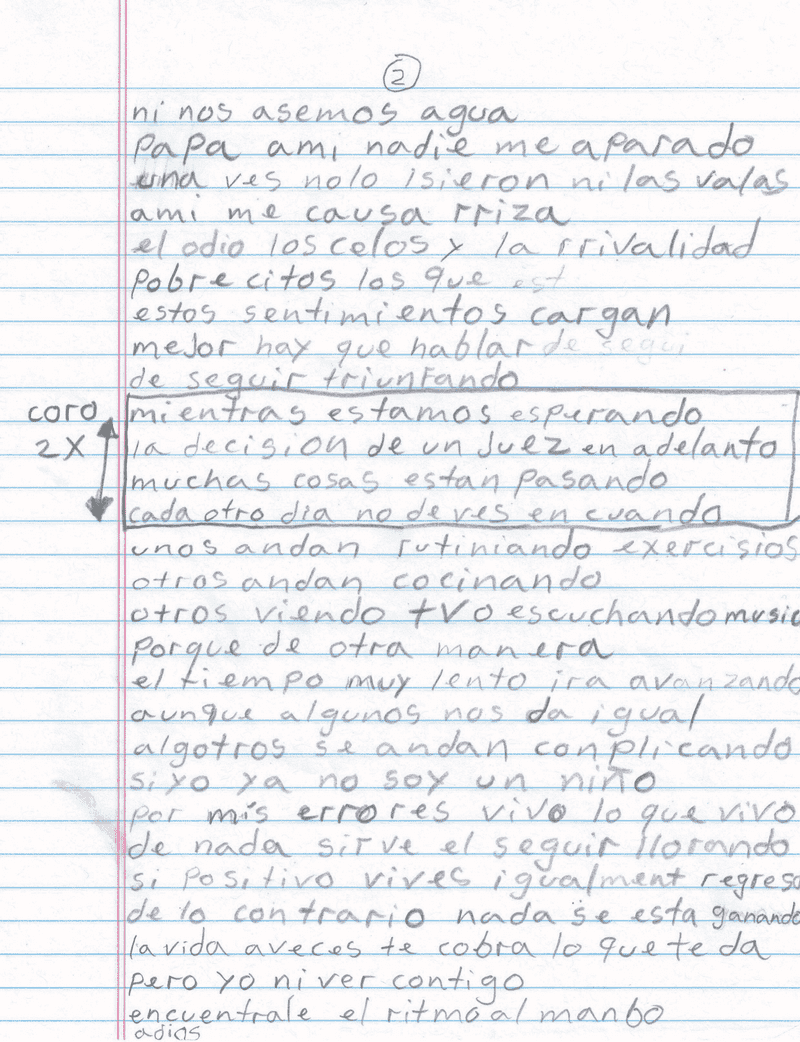 2
ni nos asemos agua
papa ami nadie me aparado
una ves nolo isieron ni las valas
ami me causa rriza
el odio los celos y la rrivalidad
pobrecitos los que est
estos sentimientos cargan
mejor hay que hablar de segui
de seguir triunfando
coro mientras estamos esperando
2X la decision de un juez en adelanto
muchas cosas estan pasando
cada otro dia no de ves en cuando
unos andan rutiniando exercisios
otros andan cocinando
otros viendo tv o escuchando music
porque de otra manera
el tiempo muy lento ira avanzando
aunque algunos nos da igual
algotros se andan conplicando
si yo ya no soy un niño
por mis errores vivo lo que vivo
de nada sirve el seguir llorando
si positivo vives igualment regreso
de lo contrario nada se esta ganando
la vida aveces te cobra lo que te da
pero yo ni ver contigo
encuentrale el ritmo al manbo
adios